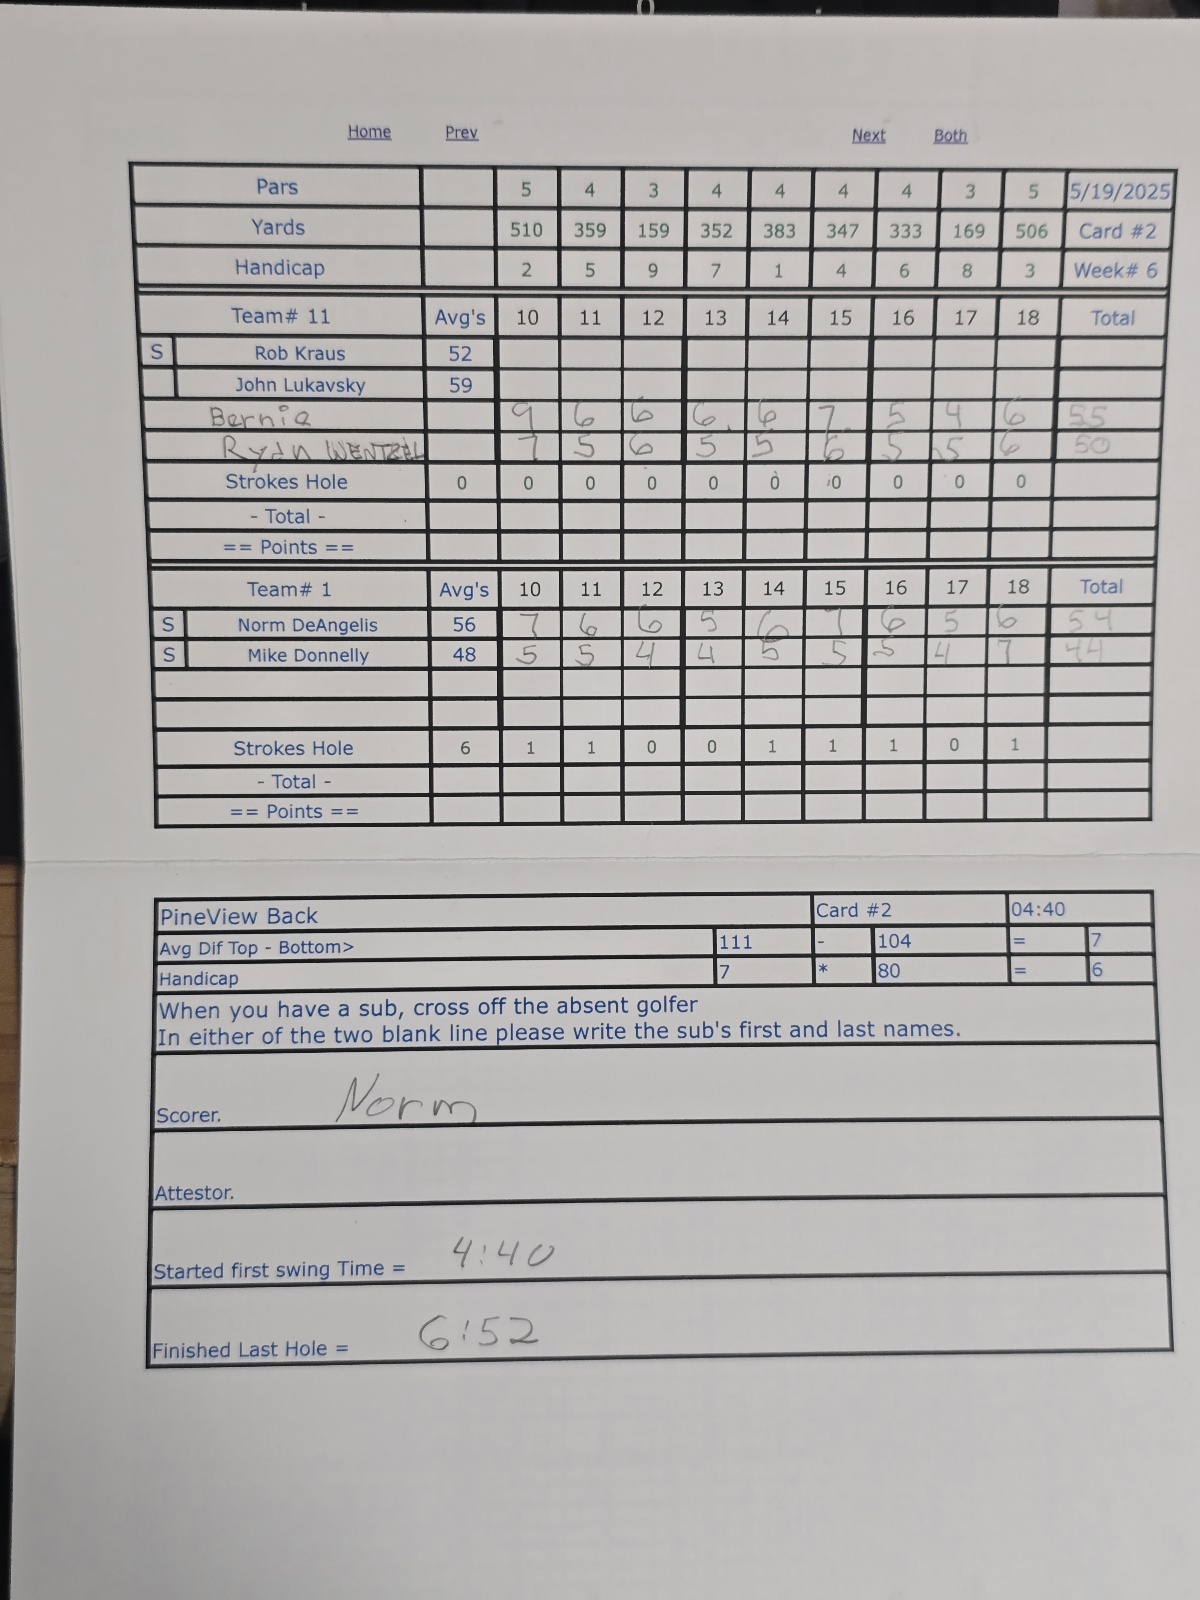 Home Prev Next Both
Pars 5 4 3 4 4 4 4 3 5 5/19/2025
Yards 510 359 159 352 383 347 333 169 506 Card #2
Handicap 2 5 9 7 1 4 6 8 3 Week# 6
Team# 11 Avg's 10 11 12 13 14 15 16 17 18 Total
S Rob Kraus 52
John Lukavsky 59
Bernie 9 6 6 6 6 7 5 4 6 55
Ryan WENTZEL 7 5 6 5 5 6 5 5 6 50
Strokes Hole 0 0 0 0 0 0 0 0 0 0
- Total -
== Points ==
Team# 1 Avg's 10 11 12 13 14 15 16 17 18 Total
S Norm DeAngelis 56 7 6 6 5 6 7 6 5 6 54
S Mike Donnelly 48 5 5 4 4 5 5 5 4 7 44
Strokes Hole 6 1 1 0 0 1 1 1 0 1
- Total -
== Points ==
PineView Back Card #2 04:40
Avg Dif Top - Bottom> 111 - 104 = 7
Handicap 7 * 80 = 6
When you have a sub, cross off the absent golfer
In either of the two blank line please write the sub's first and last names.
Scorer. Norm
Attestor.
Started first swing Time = 4:40
Finished Last Hole = 6:52